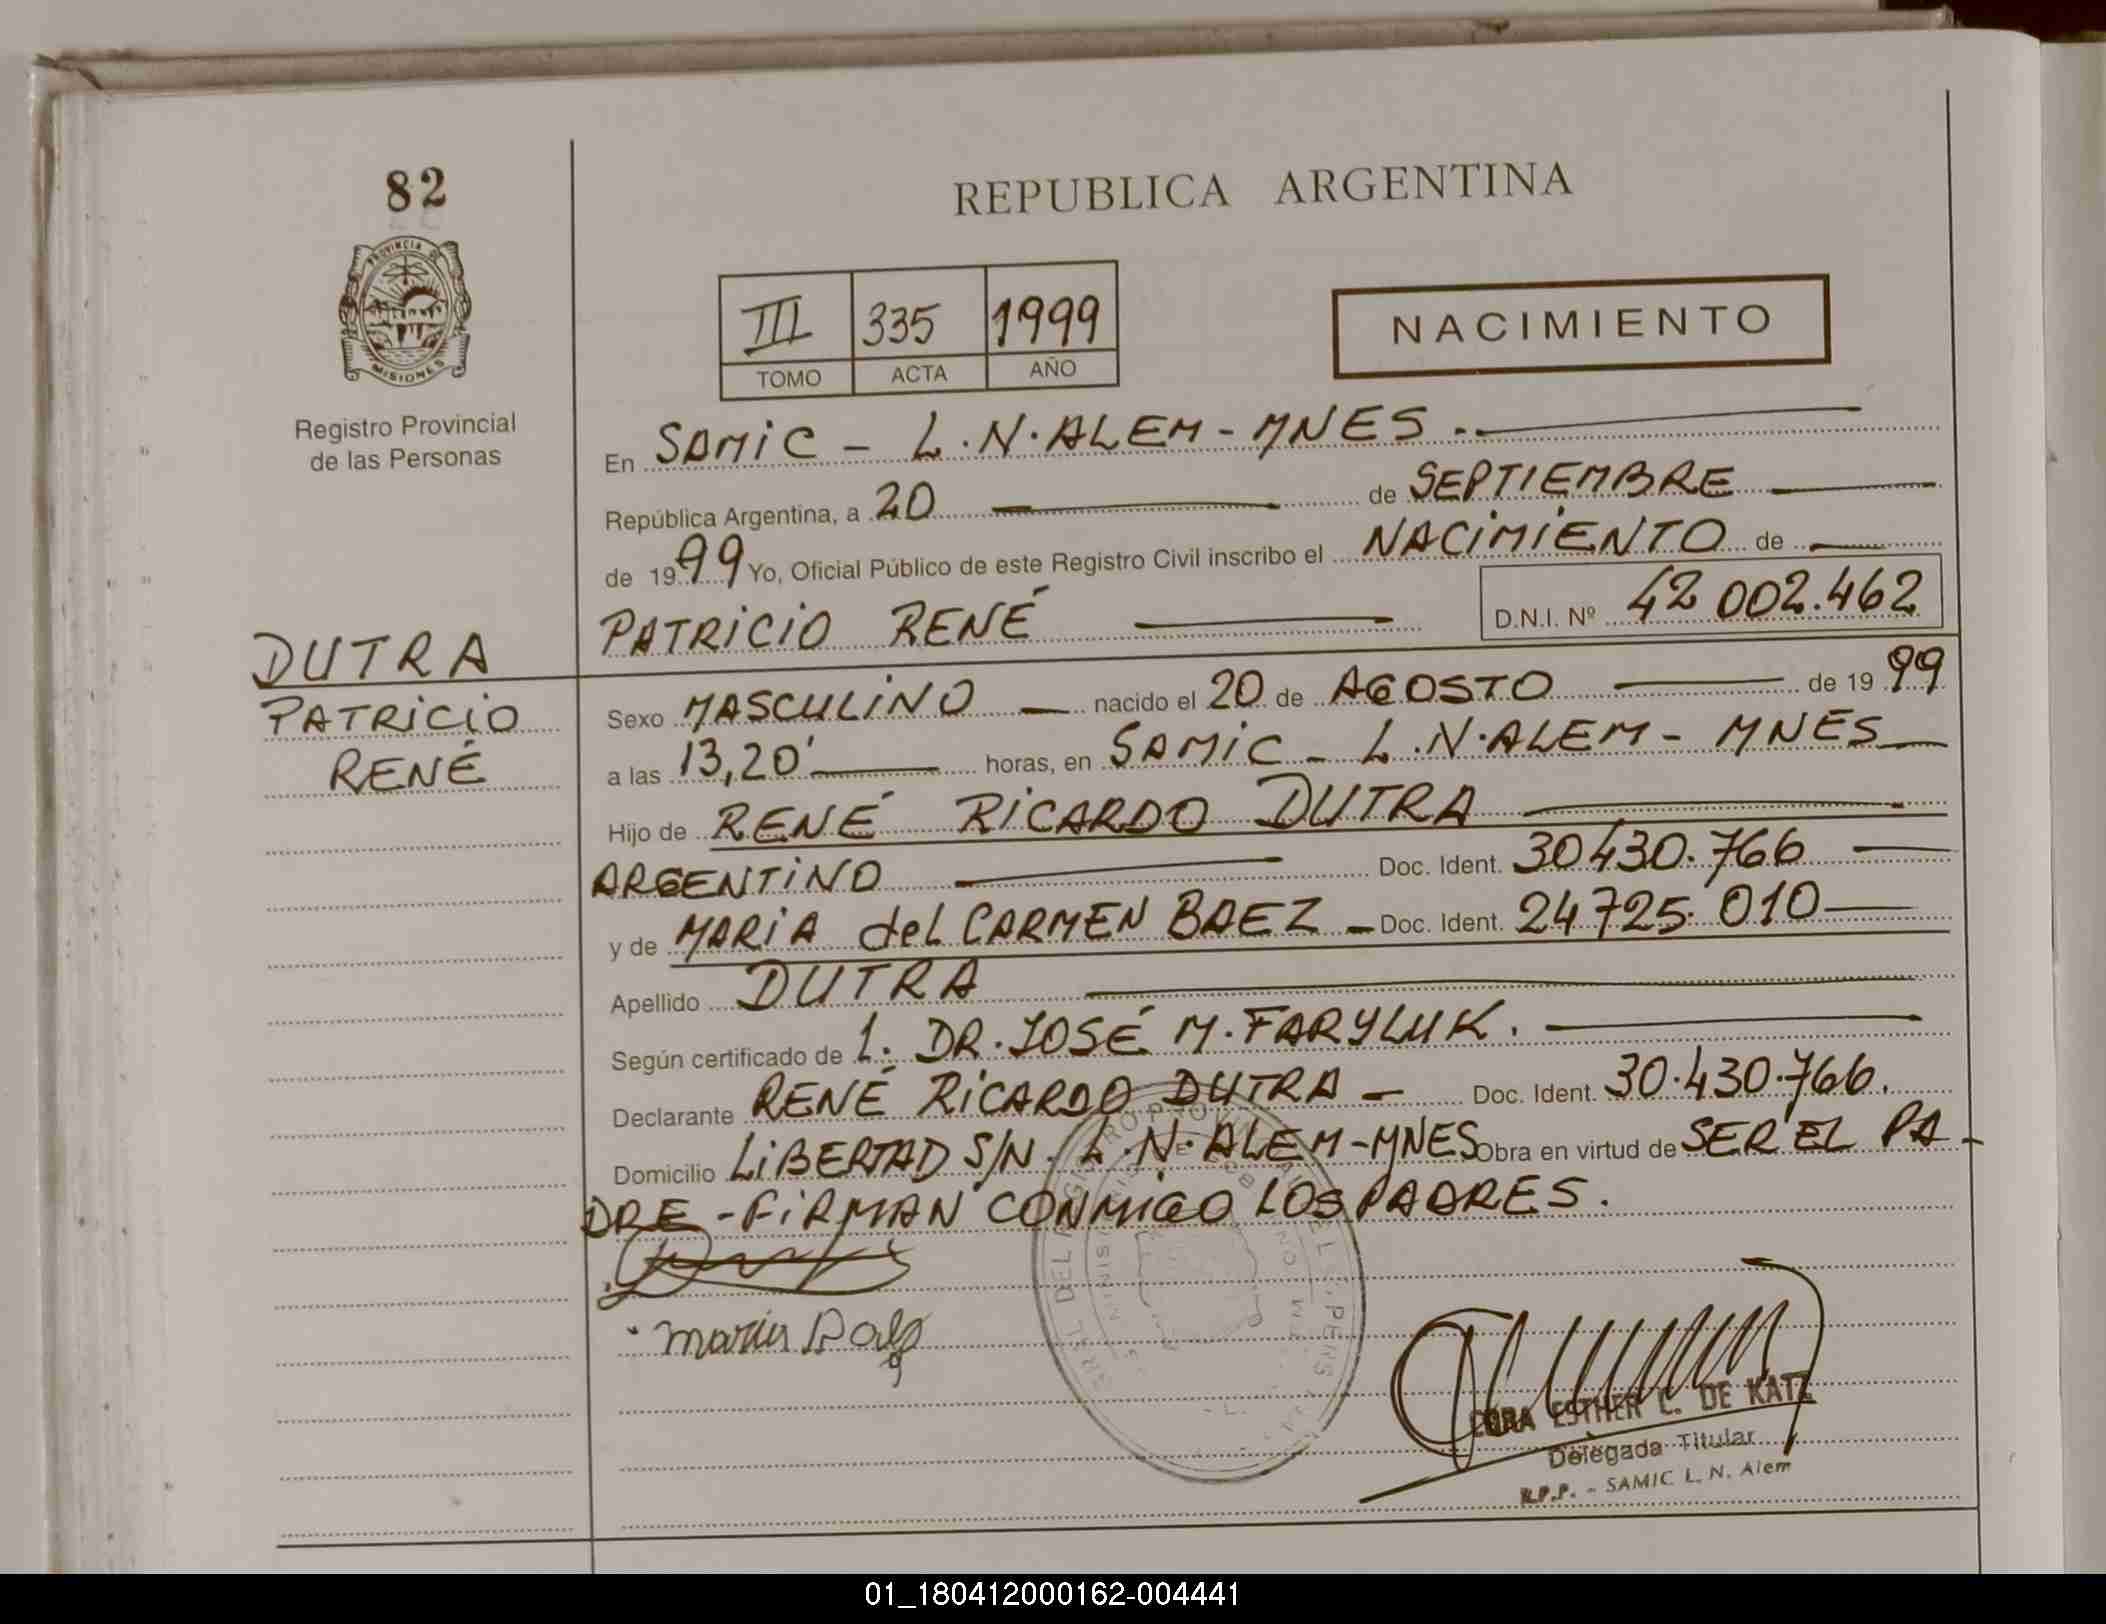 82
REPUBLICA ARGENTINA
PROVINCIA DE
MISIONES
Registro Provincial
de las Personas
III 335 1999
TOMO ACTA AÑO
NACIMIENTO
En SAMIC - L.N.ALEM - MNES.-
República Argentina, a 20 de SEPTIEMBRE
de 1999 Yo, Oficial Público de este Registro Civil inscribo el NACIMIENTO de
PATRICIO RENÉ D.N.I. Nº 42 002.462
DUTRA
PATRICIO
RENÉ
Sexo MASCULINO nacido el 20 de AGOSTO de 1999
a las 13,20' horas, en SAMIC - L.N.ALEM - MNES
Hijo de RENÉ RICARDO DUTRA
ARGENTINO Doc. Ident. 30430.766
y de MARIA del CARMEN BAEZ - Doc. Ident. 24725.010
Apellido DUTRA
Según certificado de 1. DR. JOSÉ M. FARYLUK.
Declarante RENÉ RICARDO DUTRA - Doc. Ident. 30.430.766.
Domicilio LIBERTAD S/N. L.N.ALEM-MNES Obra en virtud de SER EL PA-
DRE - FIRMAN CONMIGO LOS PADRES.
ESTHER C. DE KATZ
Delegada Titular
R.P.P. - SAMIC L. N. Alem
01_180412000162-004441